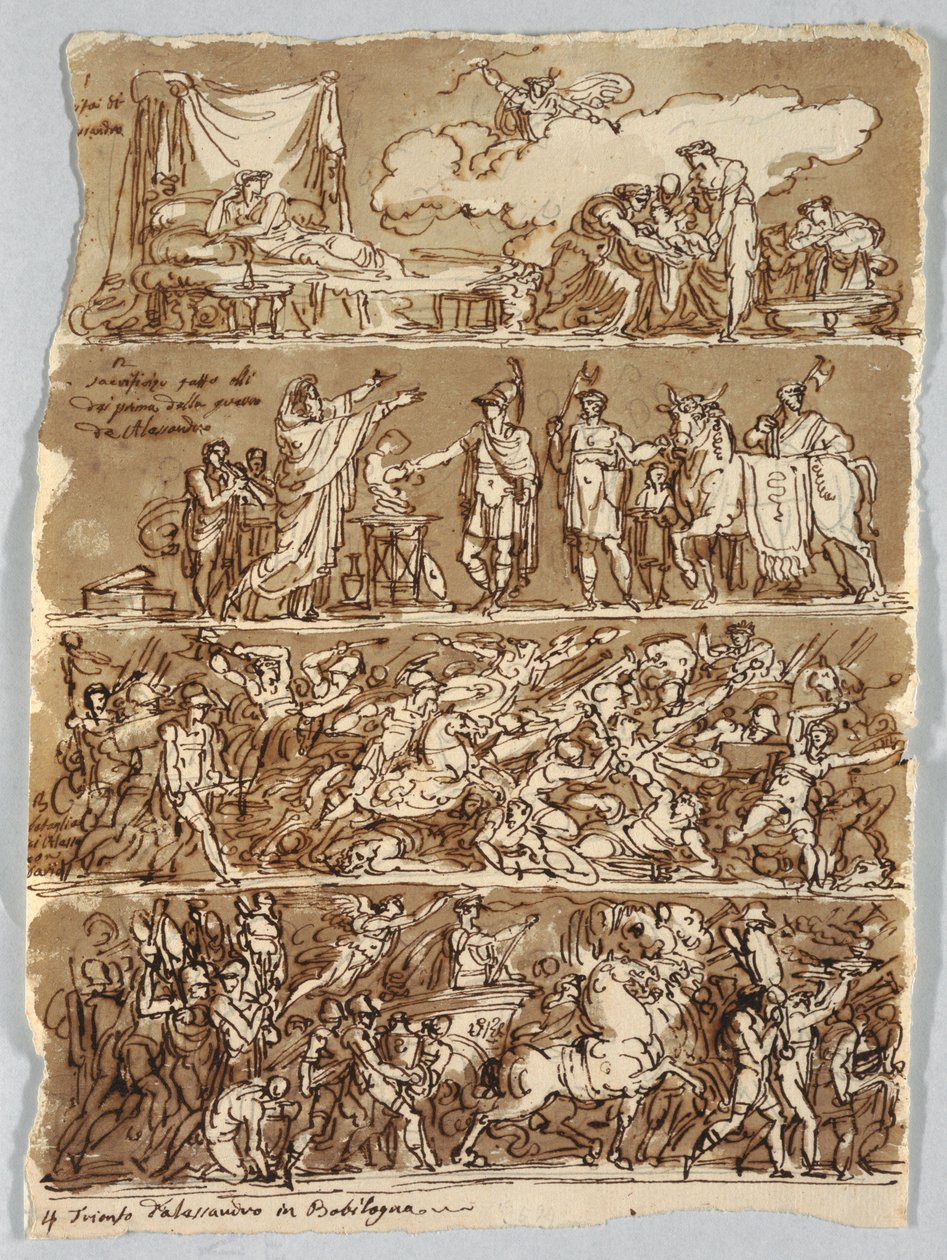 1
di
2
sacrificio fatto alli
dei prima della guerra
de Alesandro
3
bataglia
di Aless
con
Dario
4 Trionfo d'alessandro in Babilogna